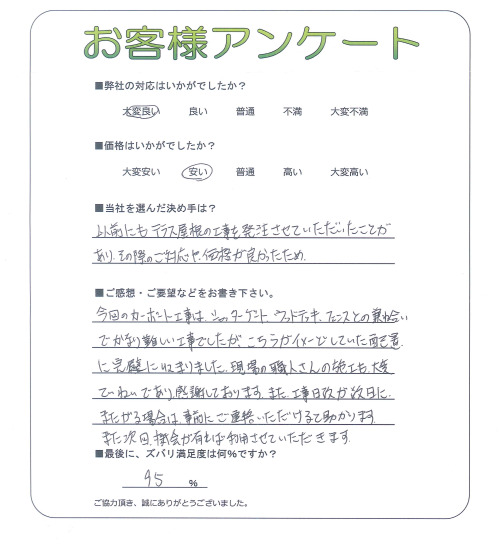 お客様アンケート
■弊社の対応はいかがでしたか？
大変良い 良い 普通 不満 大変不満
■価格はいかがでしたか？
大変安い 安い 普通 高い 大変高い
■当社を選んだ決め手は？
以前にもテラス屋根の工事を発注させていただいたことが
あり、その際のご対応や価格が良かったため。
■ご感想・ご要望などをお書き下さい。
今回のカーポート工事は、シャッターゲート、ウッドデッキ、フェンスとの兼ね合い
でかなり難しい工事でしたが、こちらがイメージしていた配置
に完璧に収まりました。現場の職人さんの施工も大変
ていねいであり、感謝しております。また、工事日程が数日に
またがる場合は、事前にご連絡いただけると助かります。
また次回、機会が有れば利用させていただきます。
■最後に、ズバリ満足度は何％ですか？
95 %
ご協力頂き、誠にありがとうございました。